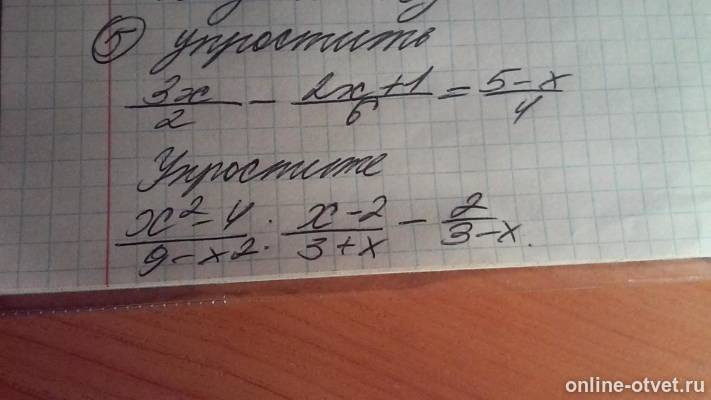 ⑤ упростить
3x/2 − 2x+1/6 = 5−x/4
Упростите
x²−4/9−x² : x−2/3+x − 2/3−x.
online-otvet.ru